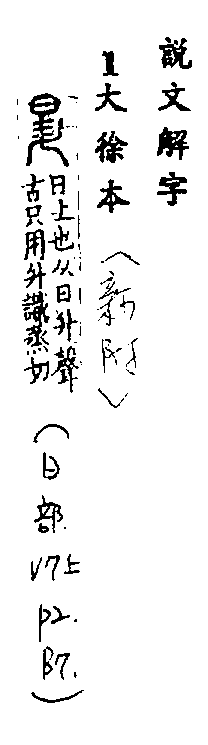 説文解字
1大徐本(新附)
昇
日上也从日升聲
古只用升識蒸切
(日部 V7上 P2. B7.)